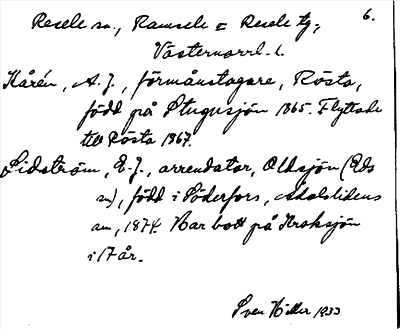 6.
Resele sn., Ramsele = Resele tg.,
Västernorrl. l.
Kårén, A. J., förmånstagare, Rösta,
född på Stugusjön 1865. Flyttade
till Rösta 1867.
Lidström, E. J., arrendator, Oldsjön (Eds
sn), född i Söderfors, Ådalslidens
sn, 1874. Har bott på Kroksjön
i 17 år.
Sven Hiller 1933